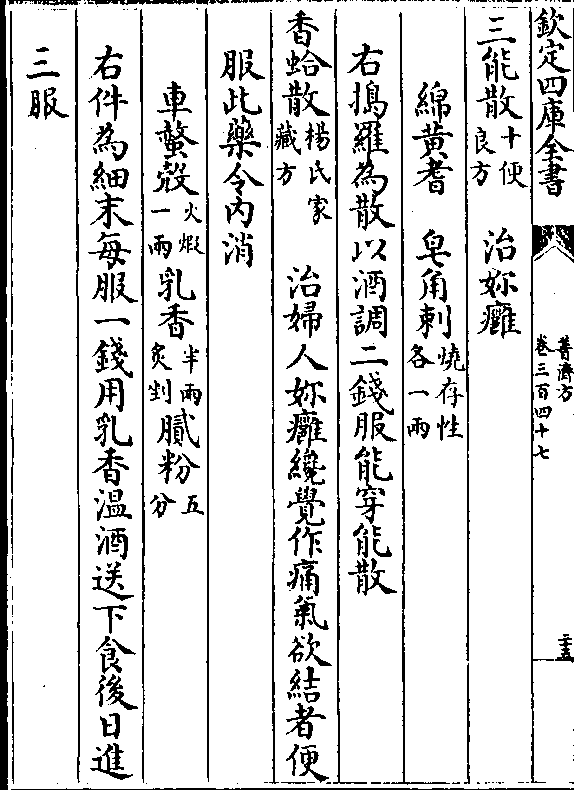 欽定四庫全書
普濟方
卷三百四十七
二十五
三能散十便良方　治妳癰
綿黃耆　皂角刺燒存性各一兩
右搗羅為散以酒調二錢服能穿能散
香蛤散楊氏家藏方　治婦人妳癰纔覺作痛氣欲結者便
服此藥令內消
車螯殼火煆一兩乳香半兩炙剉膩粉五分
右件為細末每服一錢用乳香溫酒送下食後日進
三服